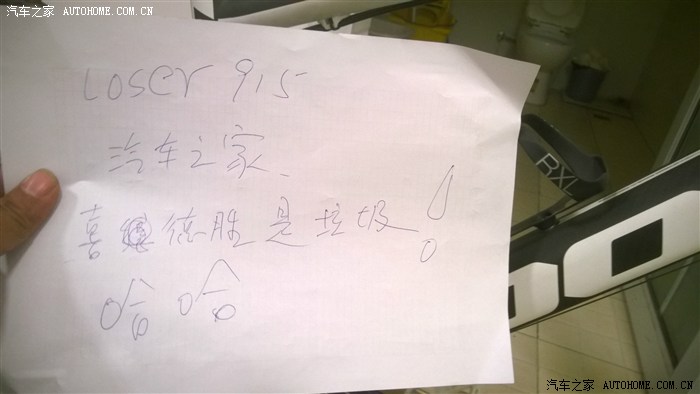 汽车之家 AUTOHOME.COM.CN
Loser 915
汽车之家.
喜德胜是垃圾!
哈哈
RXL
汽车之家 AUTOHOME.COM.CN